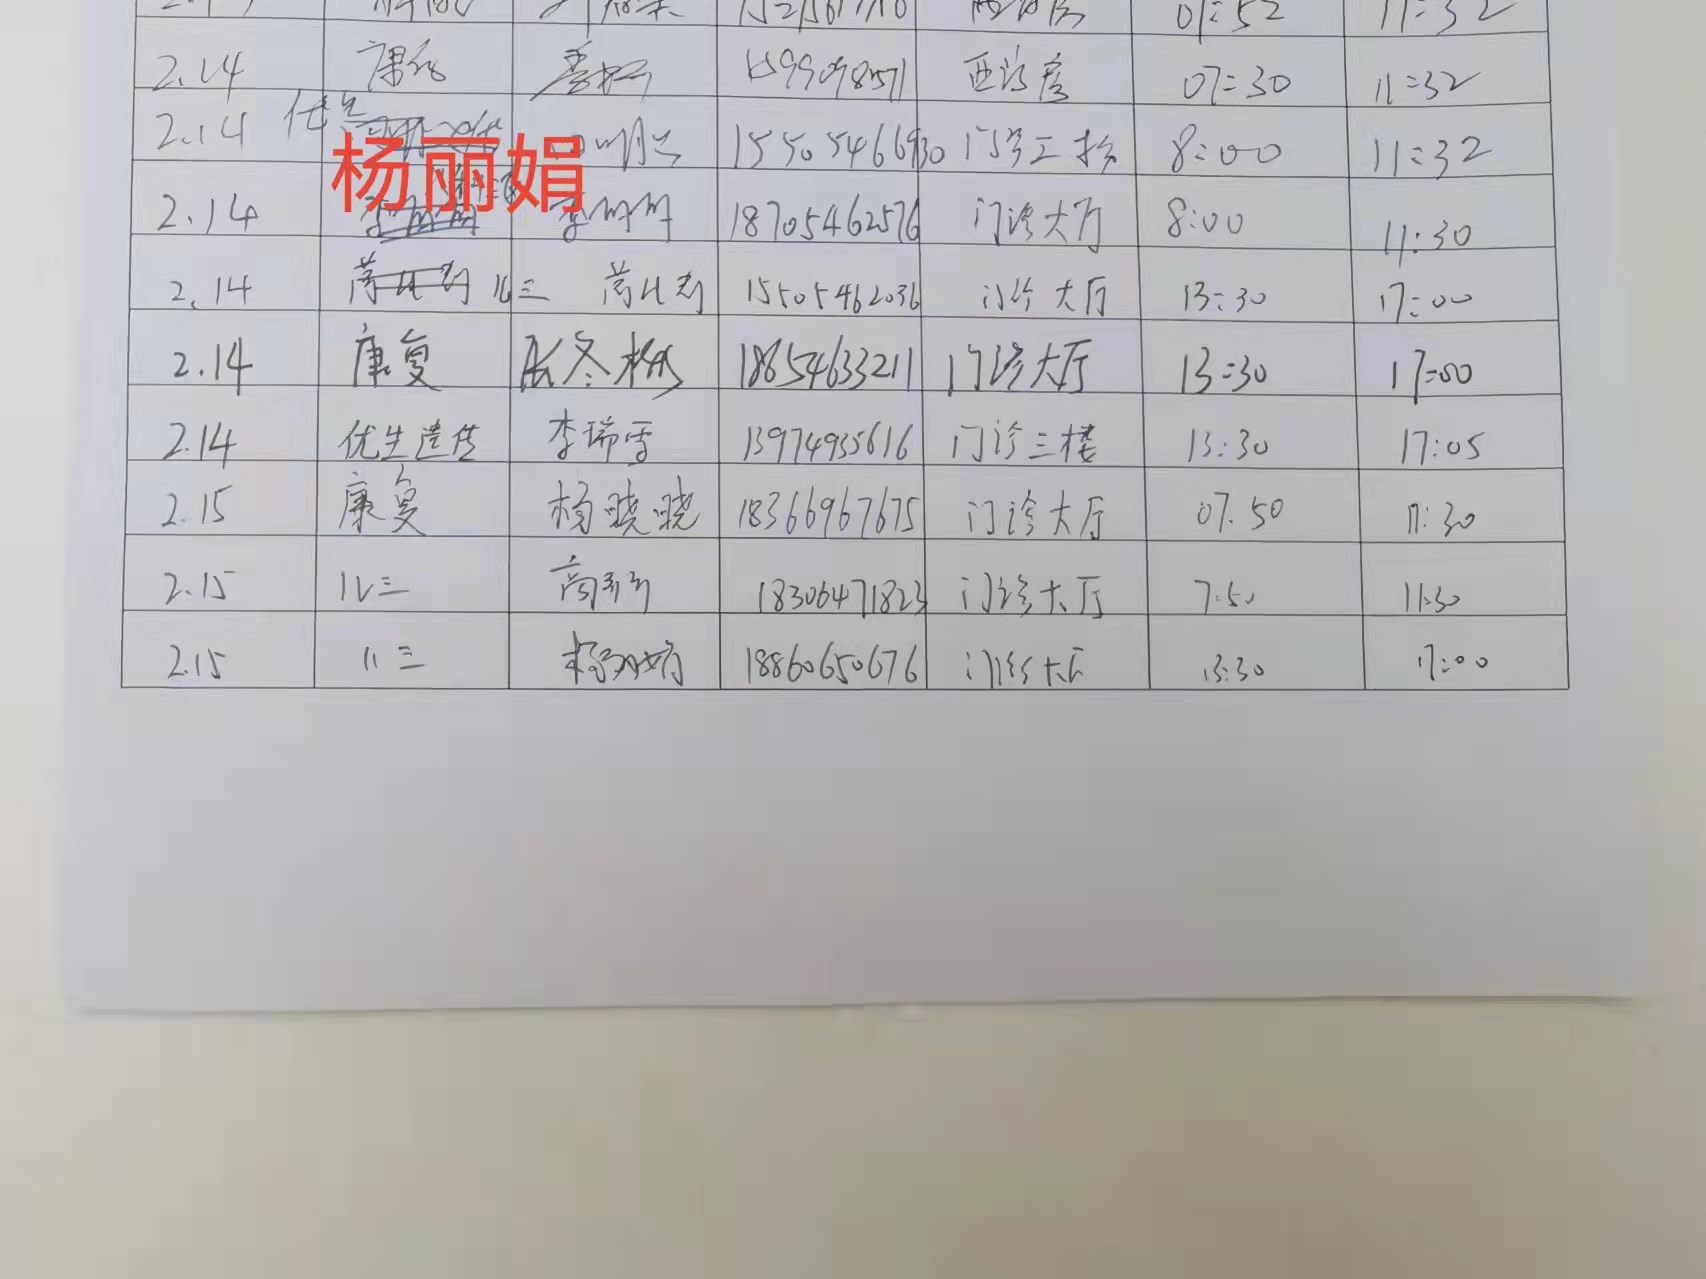 07:52 11:32
2.14 康复 1599098571 西诊房 07:30 11:32
2.14 优生 15505466930 门诊三楼 8:00 11:32
杨丽娟
2.14 李丹丹 18705462576 门诊大厅 8:00 11:30
2.14 儿三 15505462036 门诊大厅 13:30 17:00
2.14 康复 张冬梅 18654633211 门诊大厅 13:30 17:00
2.14 优生遗传 李瑞雪 13974935616 门诊三楼 13:30 17:05
2.15 康复 杨晓晓 18366967675 门诊大厅 07.50 11:30
2.15 儿三 18306471823 门诊大厅 7:50 11:30
2.15 儿三 18860650676 门诊大厅 13:30 17:00